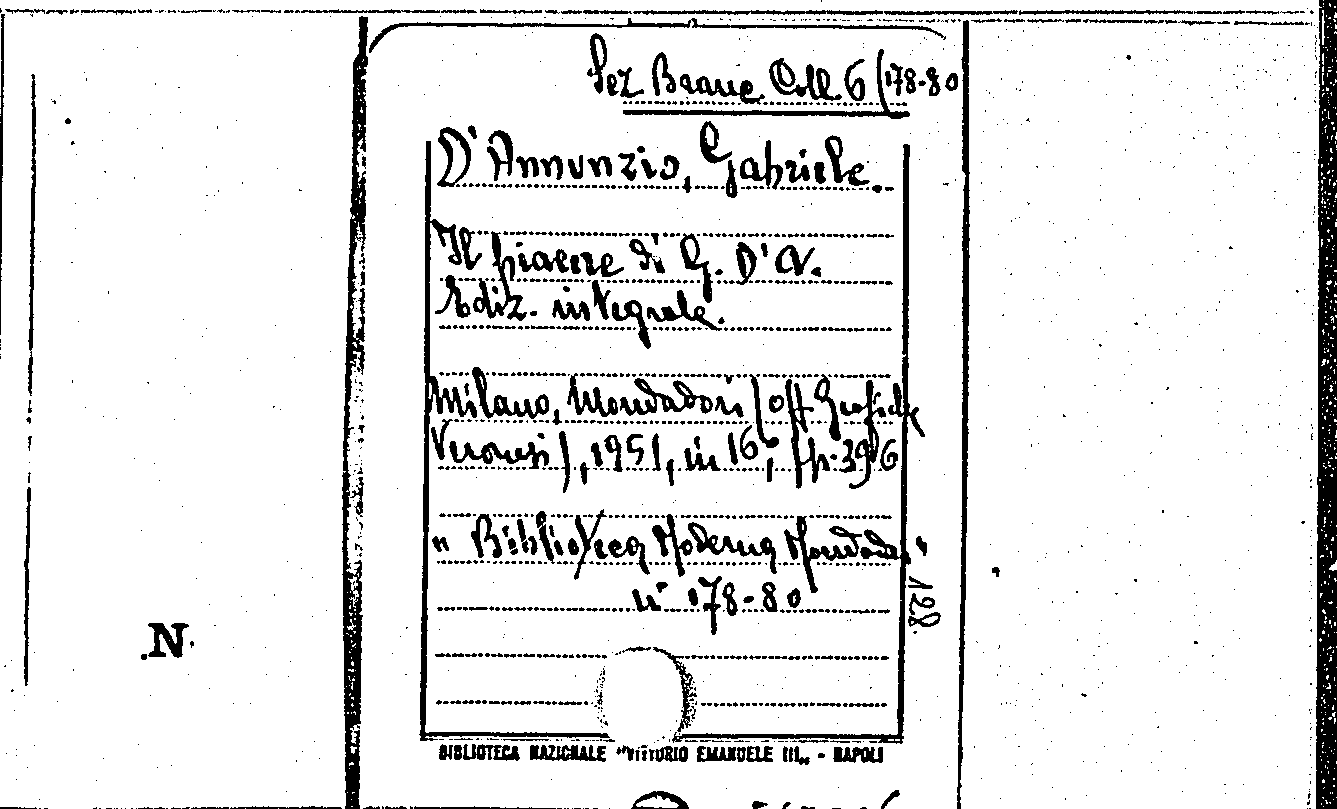 Sez Branc. Coll. 6 (178-80
D'Annunzio, Gabriele.
Il piacere di G. D'A.
Ediz. integrale.
Milano, Mondadori (Off. Grafiche
Veronesi), 1951, in 16°, pp. 396
"Biblioteca Moderna Mondadori"
n° 178-80
128
.N.
BIBLIOTECA NAZIONALE "VITTORIO EMANUELE III„ - NAPOLI